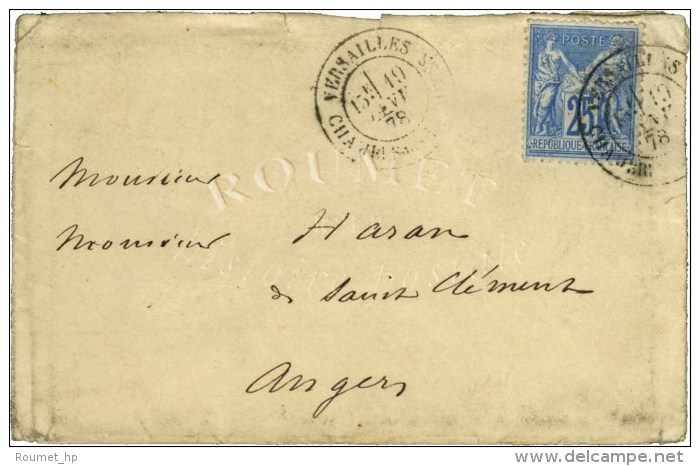 VERSAILLES
19
78
POSTE
25
REPUBLIQUE FRANCAISE
78
ROUMET
Histoire Postale
Monsieur
Monsieur Haran
de Saint Clément
Angers
Roumet_hp
www.delcampe.net